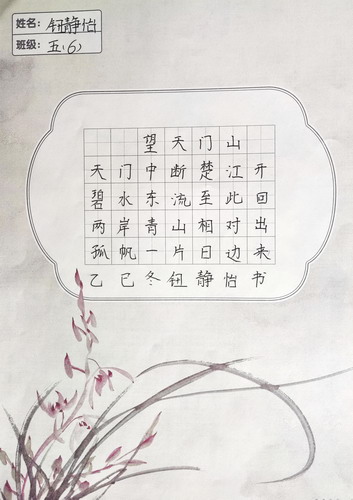 姓名：钮静怡
班级：五(6)
望天门山
天门中断楚江开
碧水东流至此回
两岸青山相对出
孤帆一片日边来
乙巳冬钮静怡书